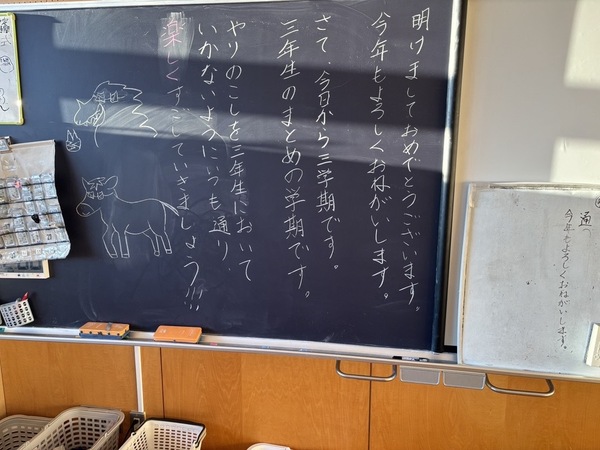 明けましておめでとうございます。
今年もよろしくおねがいします。
さて、今日から三学期です。
三年生のまとめの学期です。
やりのこしを三年生において
いかないようにいつも通り、
楽しくすごしていきましょう!!!
通つ
今年もよろしくおねがいします。